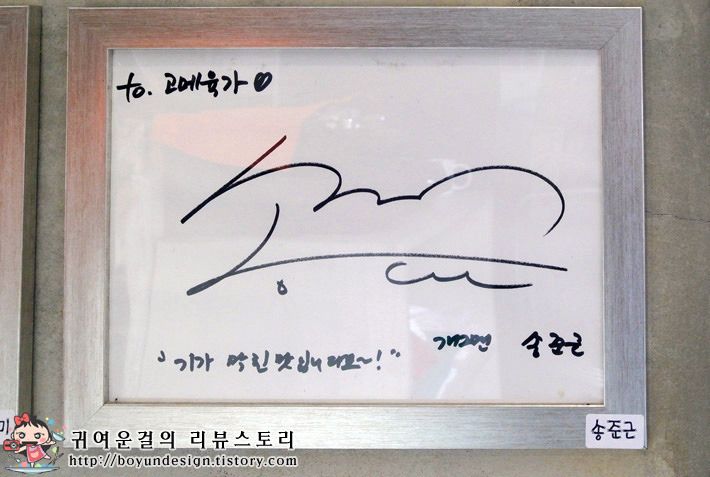 to. 고메육가
"기가 막힌 맛입니다요~!"
개그맨 송준근
송준근
미
귀여운걸의 리뷰스토리
http://boyundesign.tistory.com